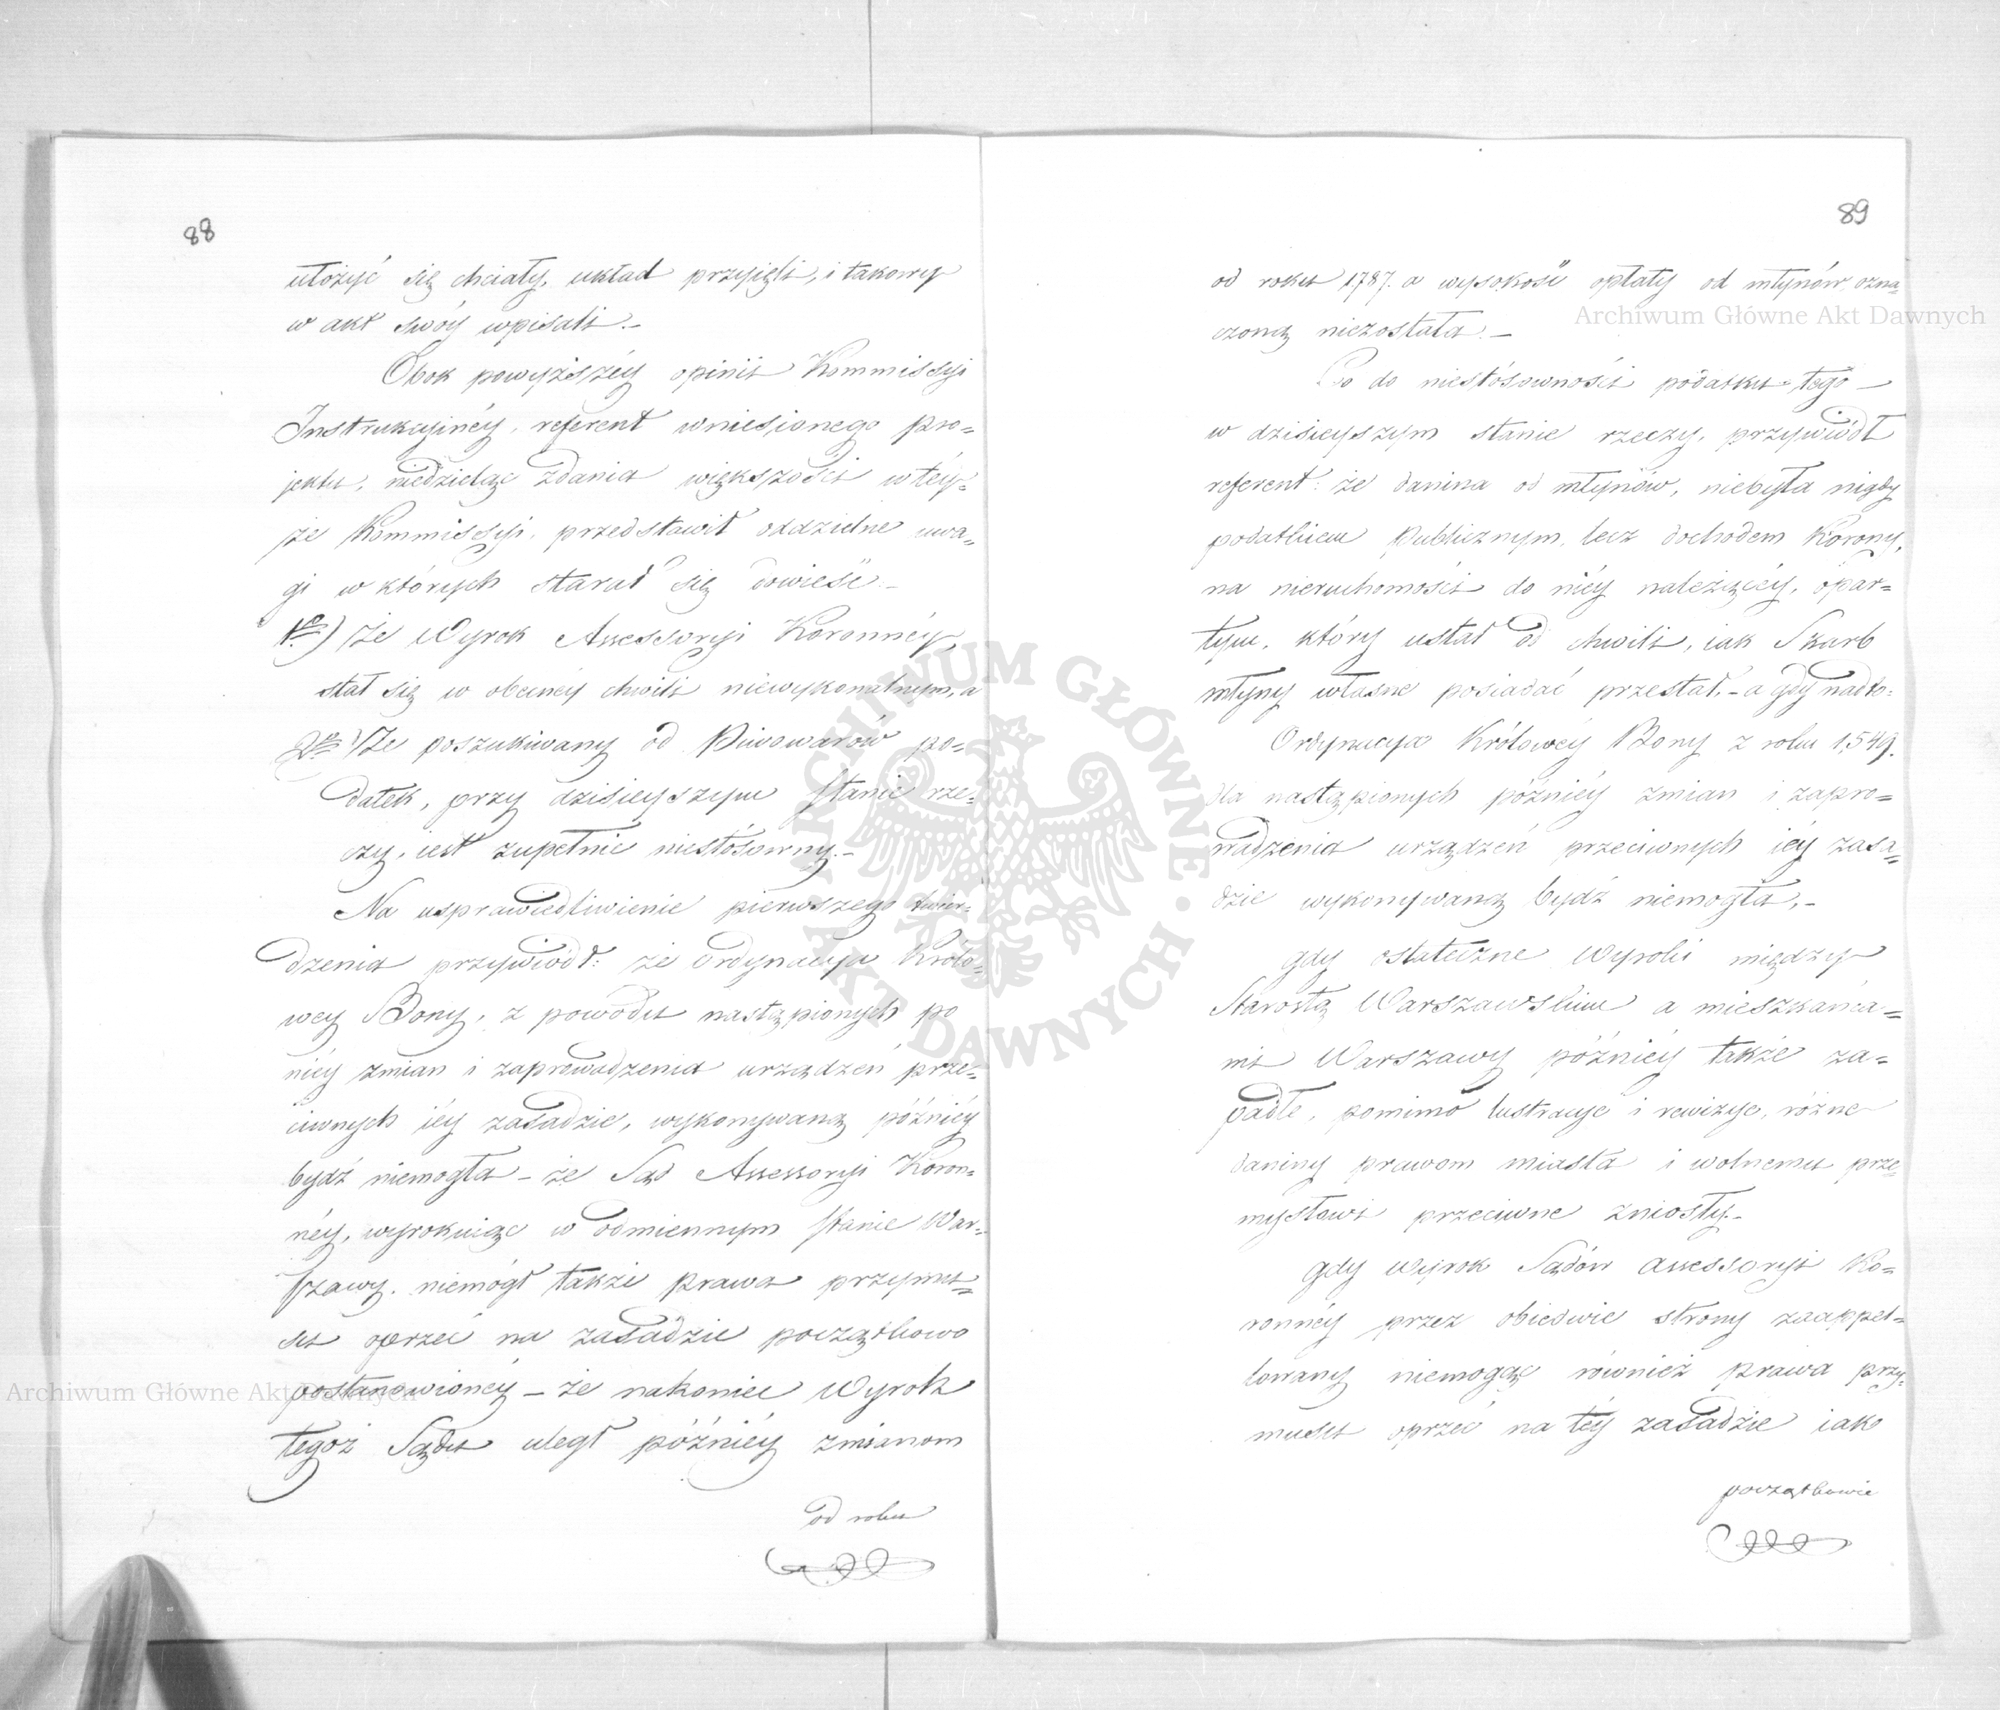 88
ułożyć się chciały, układ przyięli, i takowy
w akt swóy wpisali._
Obok powyższéy opinii Kommissyi
Instrukcyinéy, referent wniesionego pro=
jektu, niedzieląc zdania większości w téy=
że Kommissyi, przedstawił oddzielne uwa=
gi w których starał się dowieść._
1e) Że Wyrok Assessoryi Koronnéy,
stał się w obecnéy chwili niewykonalnym, a
2e) Że poszukiwany od Piwowarów po=
datek, przy dzisieyszym stanie rze=
czy, iest zupełnie niestósowny._
Na usprawiedliwienie pierwszego twier=
dzenia przywiódł: że Ordynacya Króló=
wey Bony, z powodu nastąpionych po
niéy zmian i zaprowadzenia urządzeń prze=
ciwnych iéy zasadzie, wykonywaną późniéy
bydź niemogła – że Sąd Assessoryi Koron=
néy, wyrokuiąc w odmiennym stanie War=
szawy, niemógł także prawa przymu=
su oprzeć na zasadzie początkowo
postanowionéy – że nakoniec Wyrok
tegoż Sądu uległ późniéy zmianom
od roku
89
od roku 1787. a wysokość opłaty od młynów ozna=
czoną niezostała._
Co do niestósowności podatku tego _
w dzisieyszym stanie rzeczy, przywiódł
referent: że danina od młynów, niebyła nigdy
podatkiem Publicznym, lecz dochodem Korony,
na nieruchomości do niéy należącéy, opar=
tym, który ustał od chwili, iak Skarb
młyny własne posiadać przestał, – a gdy nadto=
Ordynacya Królowéy Bony z roku 1,549.
dla nastąpionych późniéy zmian i zapro=
wadzenia urządzeń przeciwnych iéy zasa=
dzie wykonywaną bydź niemogła._
gdy ostateczne Wyroki między
Starostą Warszawskim a mieszkańca=
mi Warszawy późniéy także za=
padłe, pomimo lustracye i rewizye, różne
daniny prawom miasta i wolnemu prze=
mysłowi przeciwne zniosły._
gdy Wyrok Sądów Assessoryi Ko=
ronnéy przez obiedwie strony zaappel=
lowany niemogąc również prawa przy=
musu oprzeć na téy zasadzie iako
początkowie
Archiwum Główne Akt Dawnych
Archiwum Główne Akt Dawnych
ARCHIWUM GŁÓWNE • AKT DAWNYCH •